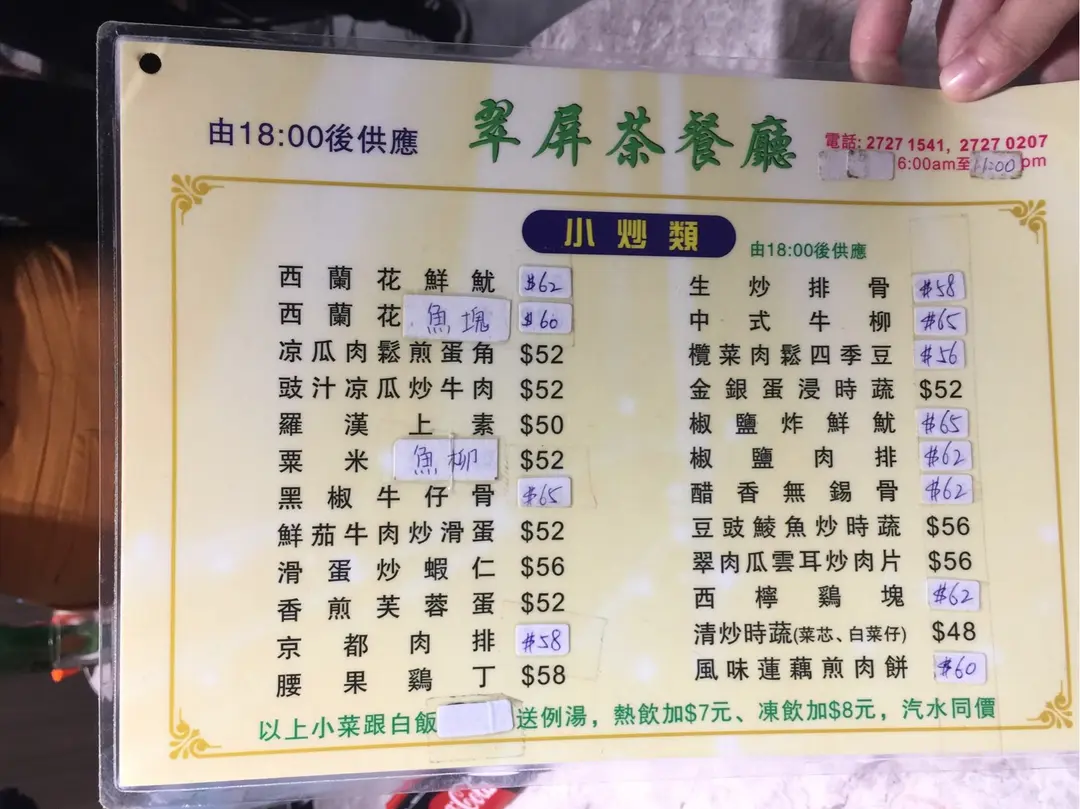 由18:00後供應
翠屏茶餐廳
電話: 2727 1541, 2727 0207
6:00am至11:00pm
小炒類
由18:00後供應
西蘭花鮮魷 $62
西蘭花魚塊 $60
凉瓜肉鬆煎蛋角 $52
豉汁凉瓜炒牛肉 $52
羅漢上素 $50
粟米魚柳 $52
黑椒牛仔骨 $65
鮮茄牛肉炒滑蛋 $52
滑蛋炒蝦仁 $56
香煎芙蓉蛋 $52
京都肉排 $58
腰果鷄丁 $58
生炒排骨 $58
中式牛柳 $65
欖菜肉鬆四季豆 $56
金銀蛋浸時蔬 $52
椒鹽炸鮮魷 $65
椒鹽肉排 $62
醋香無錫骨 $62
豆豉鯪魚炒時蔬 $56
翠肉瓜雲耳炒肉片 $56
西檸鷄塊 $62
清炒時蔬(菜芯、白菜仔) $48
風味蓮藕煎肉餅 $60
以上小菜跟白飯 送例湯，熱飲加$7元、凍飲加$8元，汽水同價